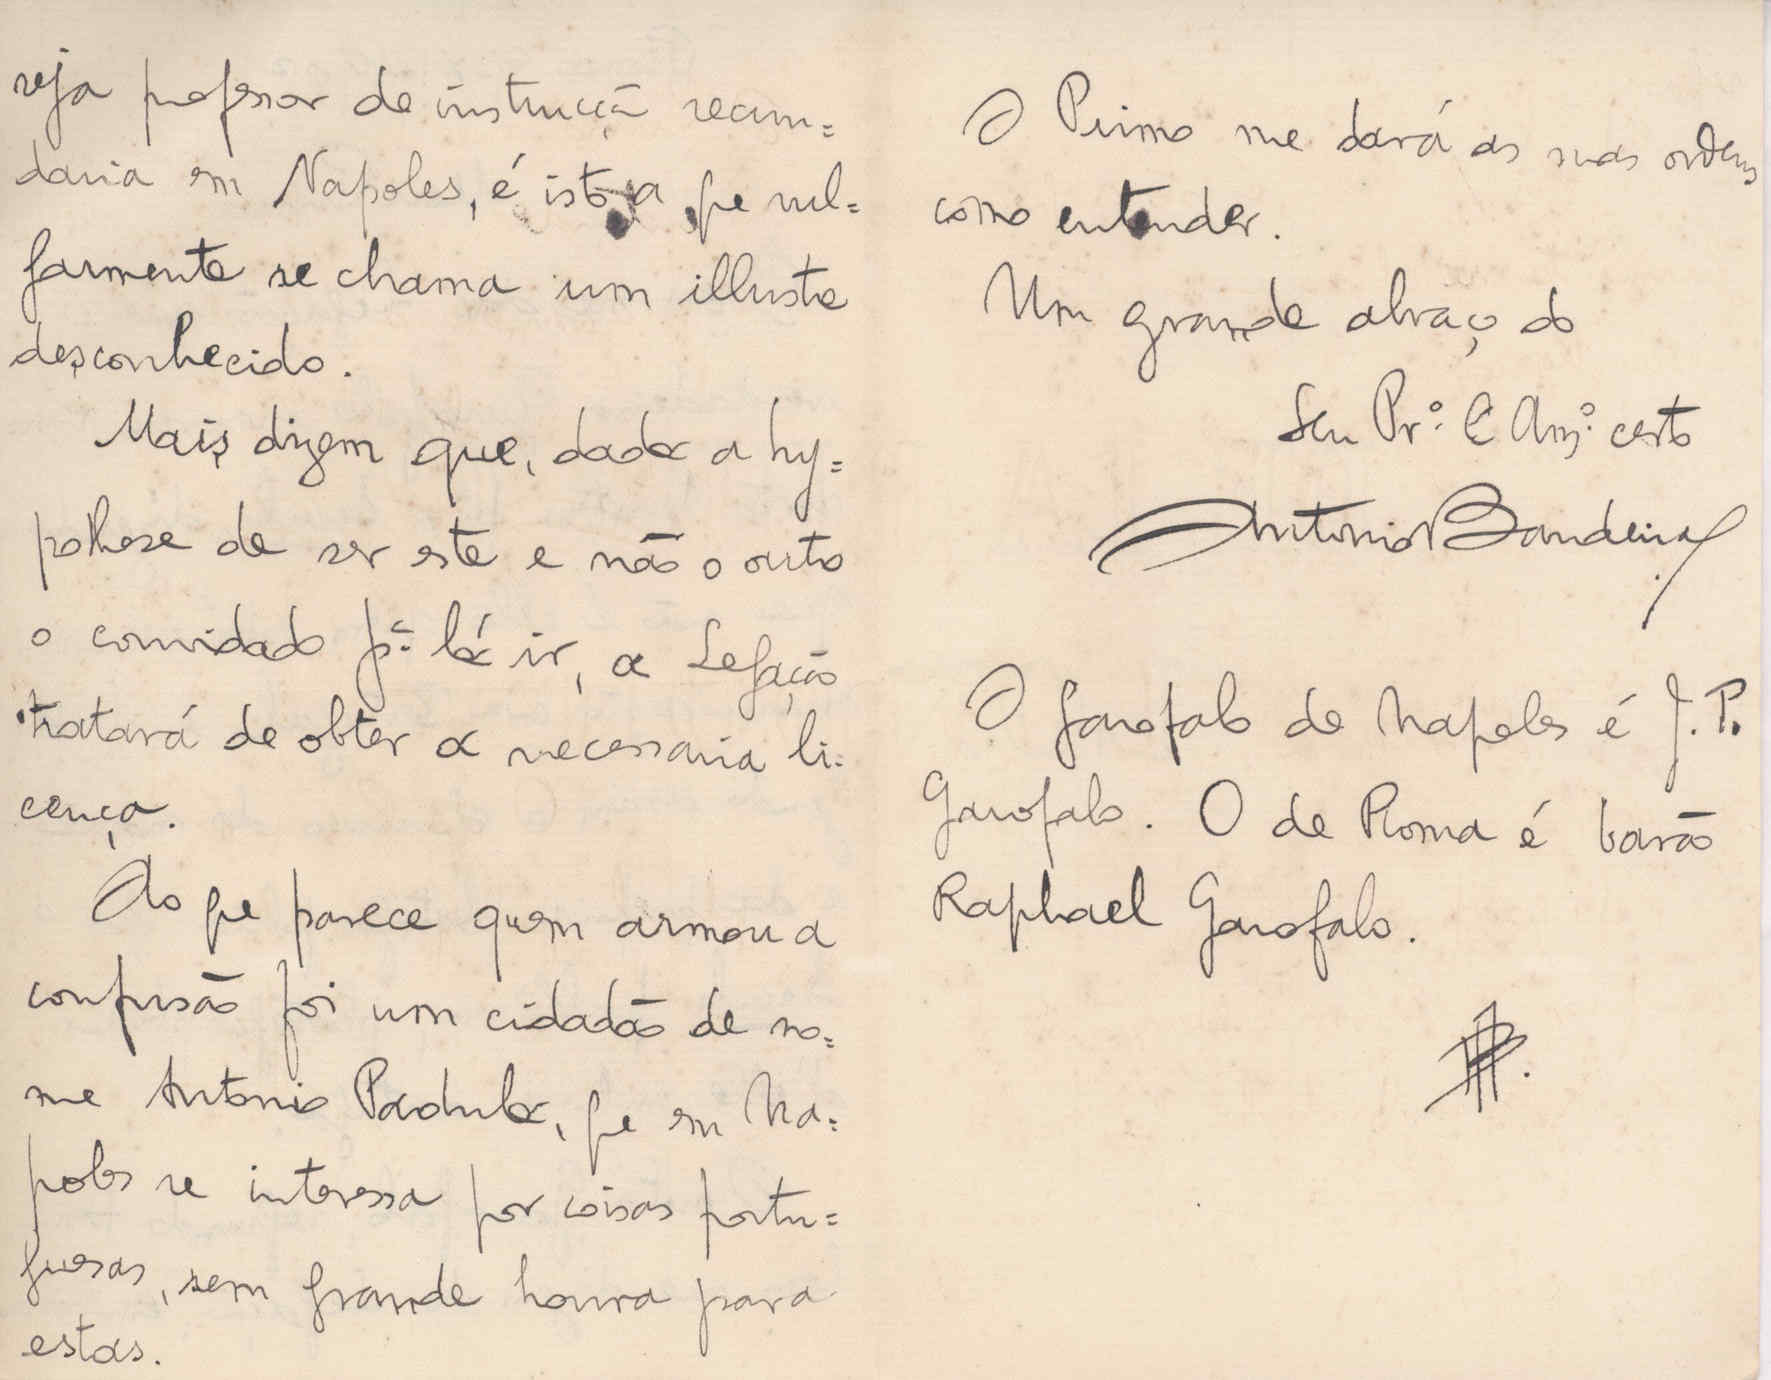 seja professor de instrucção secun=
daria em Napoles, é isto a que vul=
garmente se chama um illustre
desconhecido.
Mais dizem que, dada a hy=
pothese de ser este e não o outro
o convidado pª lá ir, a Legação
tratará de obter a necessaria li=
cença.
Ao que parece quem armou a
confusão foi um cidadão de no=
me Antonio Padula, que em Na=
poles se interessa por coisas portu=
guesas, sem grande honra para
estas.
O Primo me dará as suas ordens
como entender.
Um grande abraço do
Seu Prº. E Amº. certo
Antonio Bandeira
O Garofalo de Napoles é J. P.
Garofalo. O de Roma é barão
Raphael Garofalo.